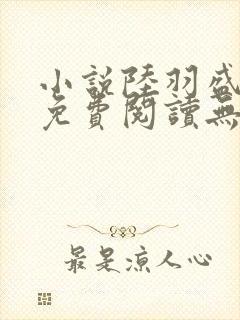 小說陸羽盛
免費閱讀無
最是涼人心